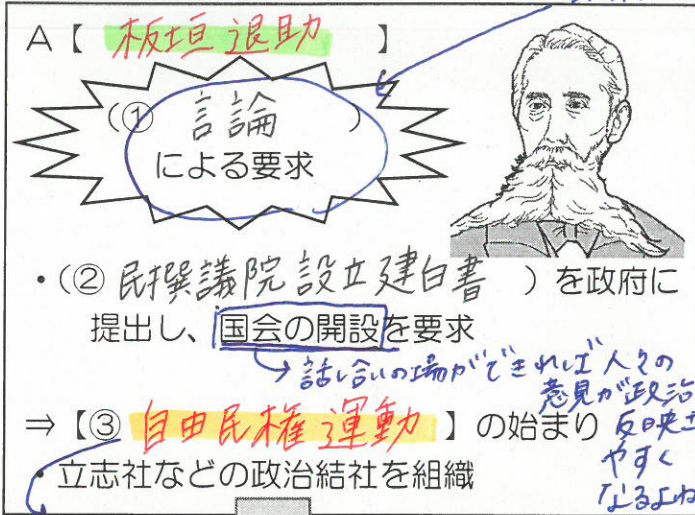 A【 板垣退助 】
(① 言論 )
による要求
・(② 民撰議院設立建白書 ) を政府に
提出し、国会の開設を要求
→ 話し合いの場ができれば 人々の
意見が政治
反映さ
やすく
なるよね
⇒【③ 自由民権運動 】の始まり
・立志社などの政治結社を組織